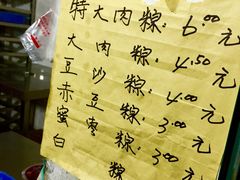 特大肉粽: 6.00元
大肉粽: 4.50元
豆沙粽: 4.00元
赤豆粽: 3.00元
蜜枣粽: 3.00元
白粽